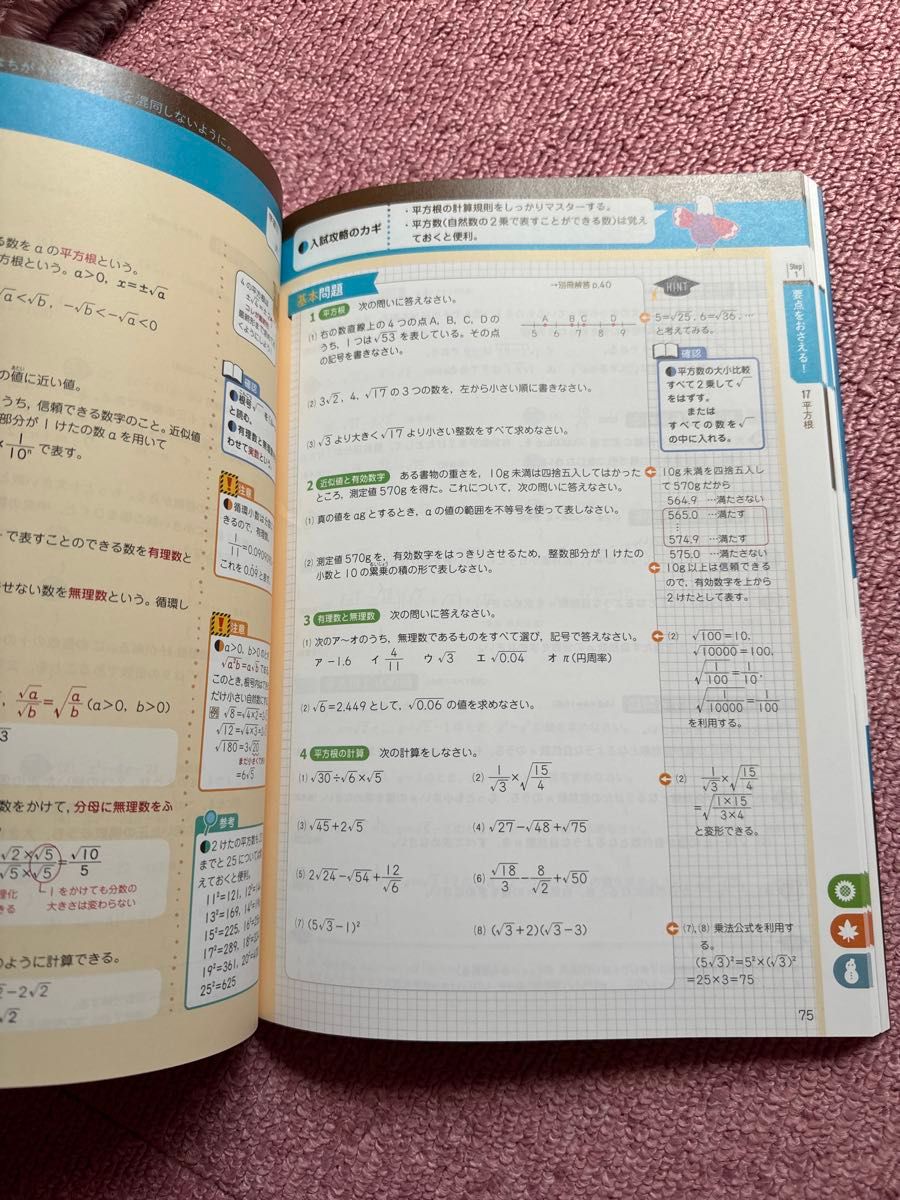 を混同しないように。
る数をaの平方根という。
方根という。a>0, x=±√a
√a<√b, −√b<−√a<0
の値に近い値。
うち，信頼できる数字のこと。近似値
部分が1けたの数aを用いて
× 1/10ⁿ で表す。
で表すことのできる数を有理数と
せない数を無理数という。循環し
√a/√b=√(a/b) (a>0, b>0)
数をかけて，分母に無理数をふ
√2×√5/√5×√5=√10/5
1をかけても分数の
大きさは変わらない
のように計算できる。
−2√2
√2
4の平方根は
確認
●根号√
と読む。
●有理数と無理数
わせて実数という。
注意
●循環小数は分数
きるので，有理数。
1/11=0.0909
これを0.09と表す。
注意
●a>0, b>0のとき
√a²b=a√b
このとき，根号内は
だけ小さい自然数に
例 √8=√4×2=
√12=√4×3=
√180=3√20
=6√5
参考
●2けたの平方数も
までと25について
えておくと便利。
11²=121, 12²=
13²=169, 14²=
15²=225, 16²=
17²=289, 18²=
19²=361, 20²=
25²=625
●入試攻略のカギ
・平方根の計算規則をしっかりマスターする。
・平方数(自然数の2乗で表すことができる数)は覚え
ておくと便利。
基本問題
→別冊解答 p.40
1 平方根 次の問いに答えなさい。
(1) 右の数直線上の4つの点A，B，C，Dの
うち，1つは√53を表している。その点
の記号を書きなさい。
A B C D
5 6 7 8 9
(2) 3√2，4，√17の3つの数を，左から小さい順に書きなさい。
(3) √3より大きく√17より小さい整数をすべて求めなさい。
2 近似値と有効数字 ある書物の重さを，10g未満は四捨五入してはかった
ところ，測定値570gを得た。これについて，次の問いに答えなさい。
(1) 真の値をagとするとき，aの値の範囲を不等号を使って表しなさい。
(2) 測定値570gを，有効数字をはっきりさせるため，整数部分が1けたの
小数と10の累乗の積の形で表しなさい。
3 有理数と無理数 次の問いに答えなさい。
(1) 次のア〜オのうち，無理数であるものをすべて選び，記号で答えなさい。
ア −1.6 イ 4/11 ウ √3 エ √0.04 オ π(円周率)
(2) √6=2.449として，√0.06の値を求めなさい。
4 平方根の計算 次の計算をしなさい。
(1) √30÷√6×√5 (2) 1/√3×√(15/4)
(3) √45+2√5 (4) √27−√48+√75
(5) 2√24−√54+12/√6 (6) √18/3−8/√2+√50
(7) (5√3−1)² (8) (√3+2)(√3−3)
HINT
5=√25，6=√36，…
と考えてみる。
確認
●平方数の大小比較
すべて2乗して√
をはずす。
または
すべての数を√
の中に入れる。
10g未満を四捨五入し
て570gだから
564.9 …満たさない
565.0 …満たす
574.9 …満たす
575.0 …満たさない
10g以上は信頼できる
ので，有効数字を上から
2けたとして表す。
(2) √100=10，
√10000=100，
√(1/100)=1/10，
√(1/10000)=1/100
を利用する。
(2) 1/√3×√(15/4)
=√(1×15/3×4)
と変形できる。
(7)，(8) 乗法公式を利用す
る。
(5√3)²=5²×(√3)²
=25×3=75
Step
1
要点をおさえる！
17 平方根
75